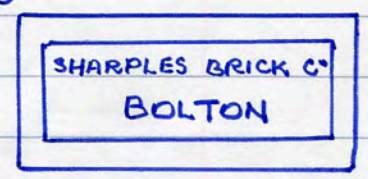 SHARPLES BRICK Co
BOLTON